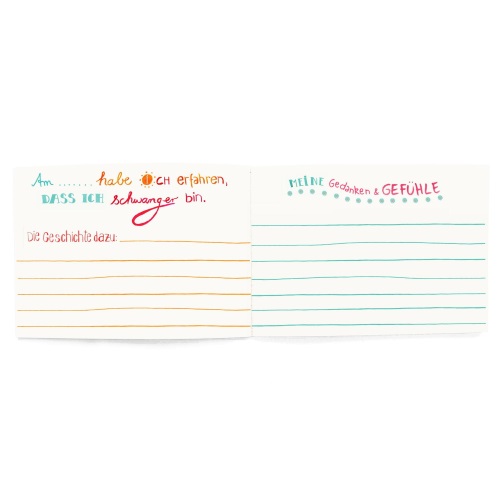 Am ....... habe ICH erfahren,
DASS ICH schwanger bin.
Die Geschichte dazu:
MEINE Gedanken & GEFÜHLE